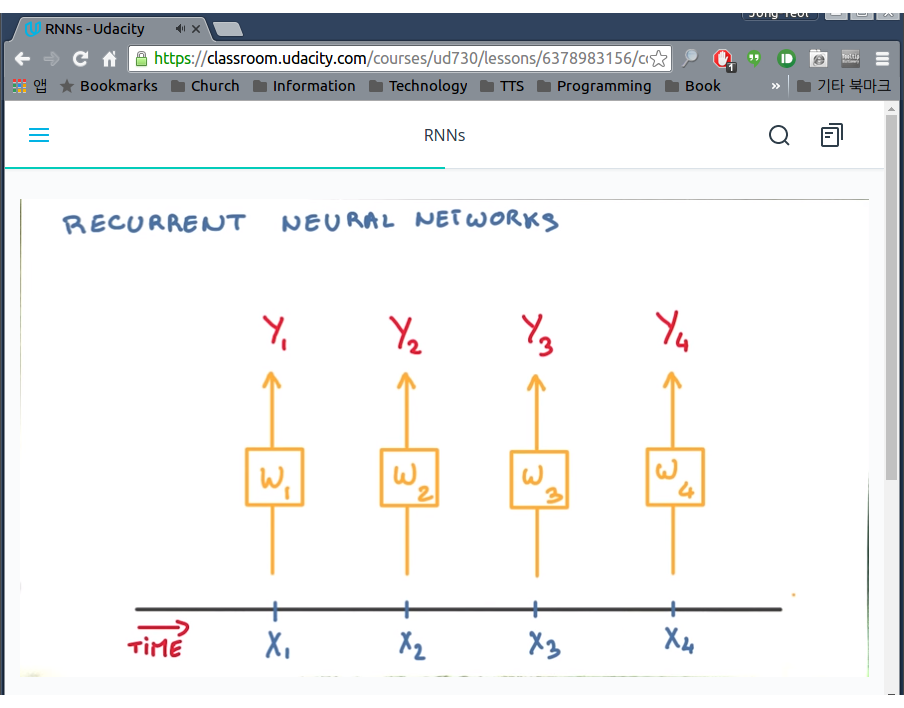 RNNs - Udacity
https://classroom.udacity.com/courses/ud730/lessons/6378983156/c
앱 Bookmarks Church Information Technology TTS Programming Book » 기타 북마크
RNNs
RECURRENT NEURAL NETWORKS
Y1 Y2 Y3 Y4
W1 W2 W3 W4
TiME X1 X2 X3 X4